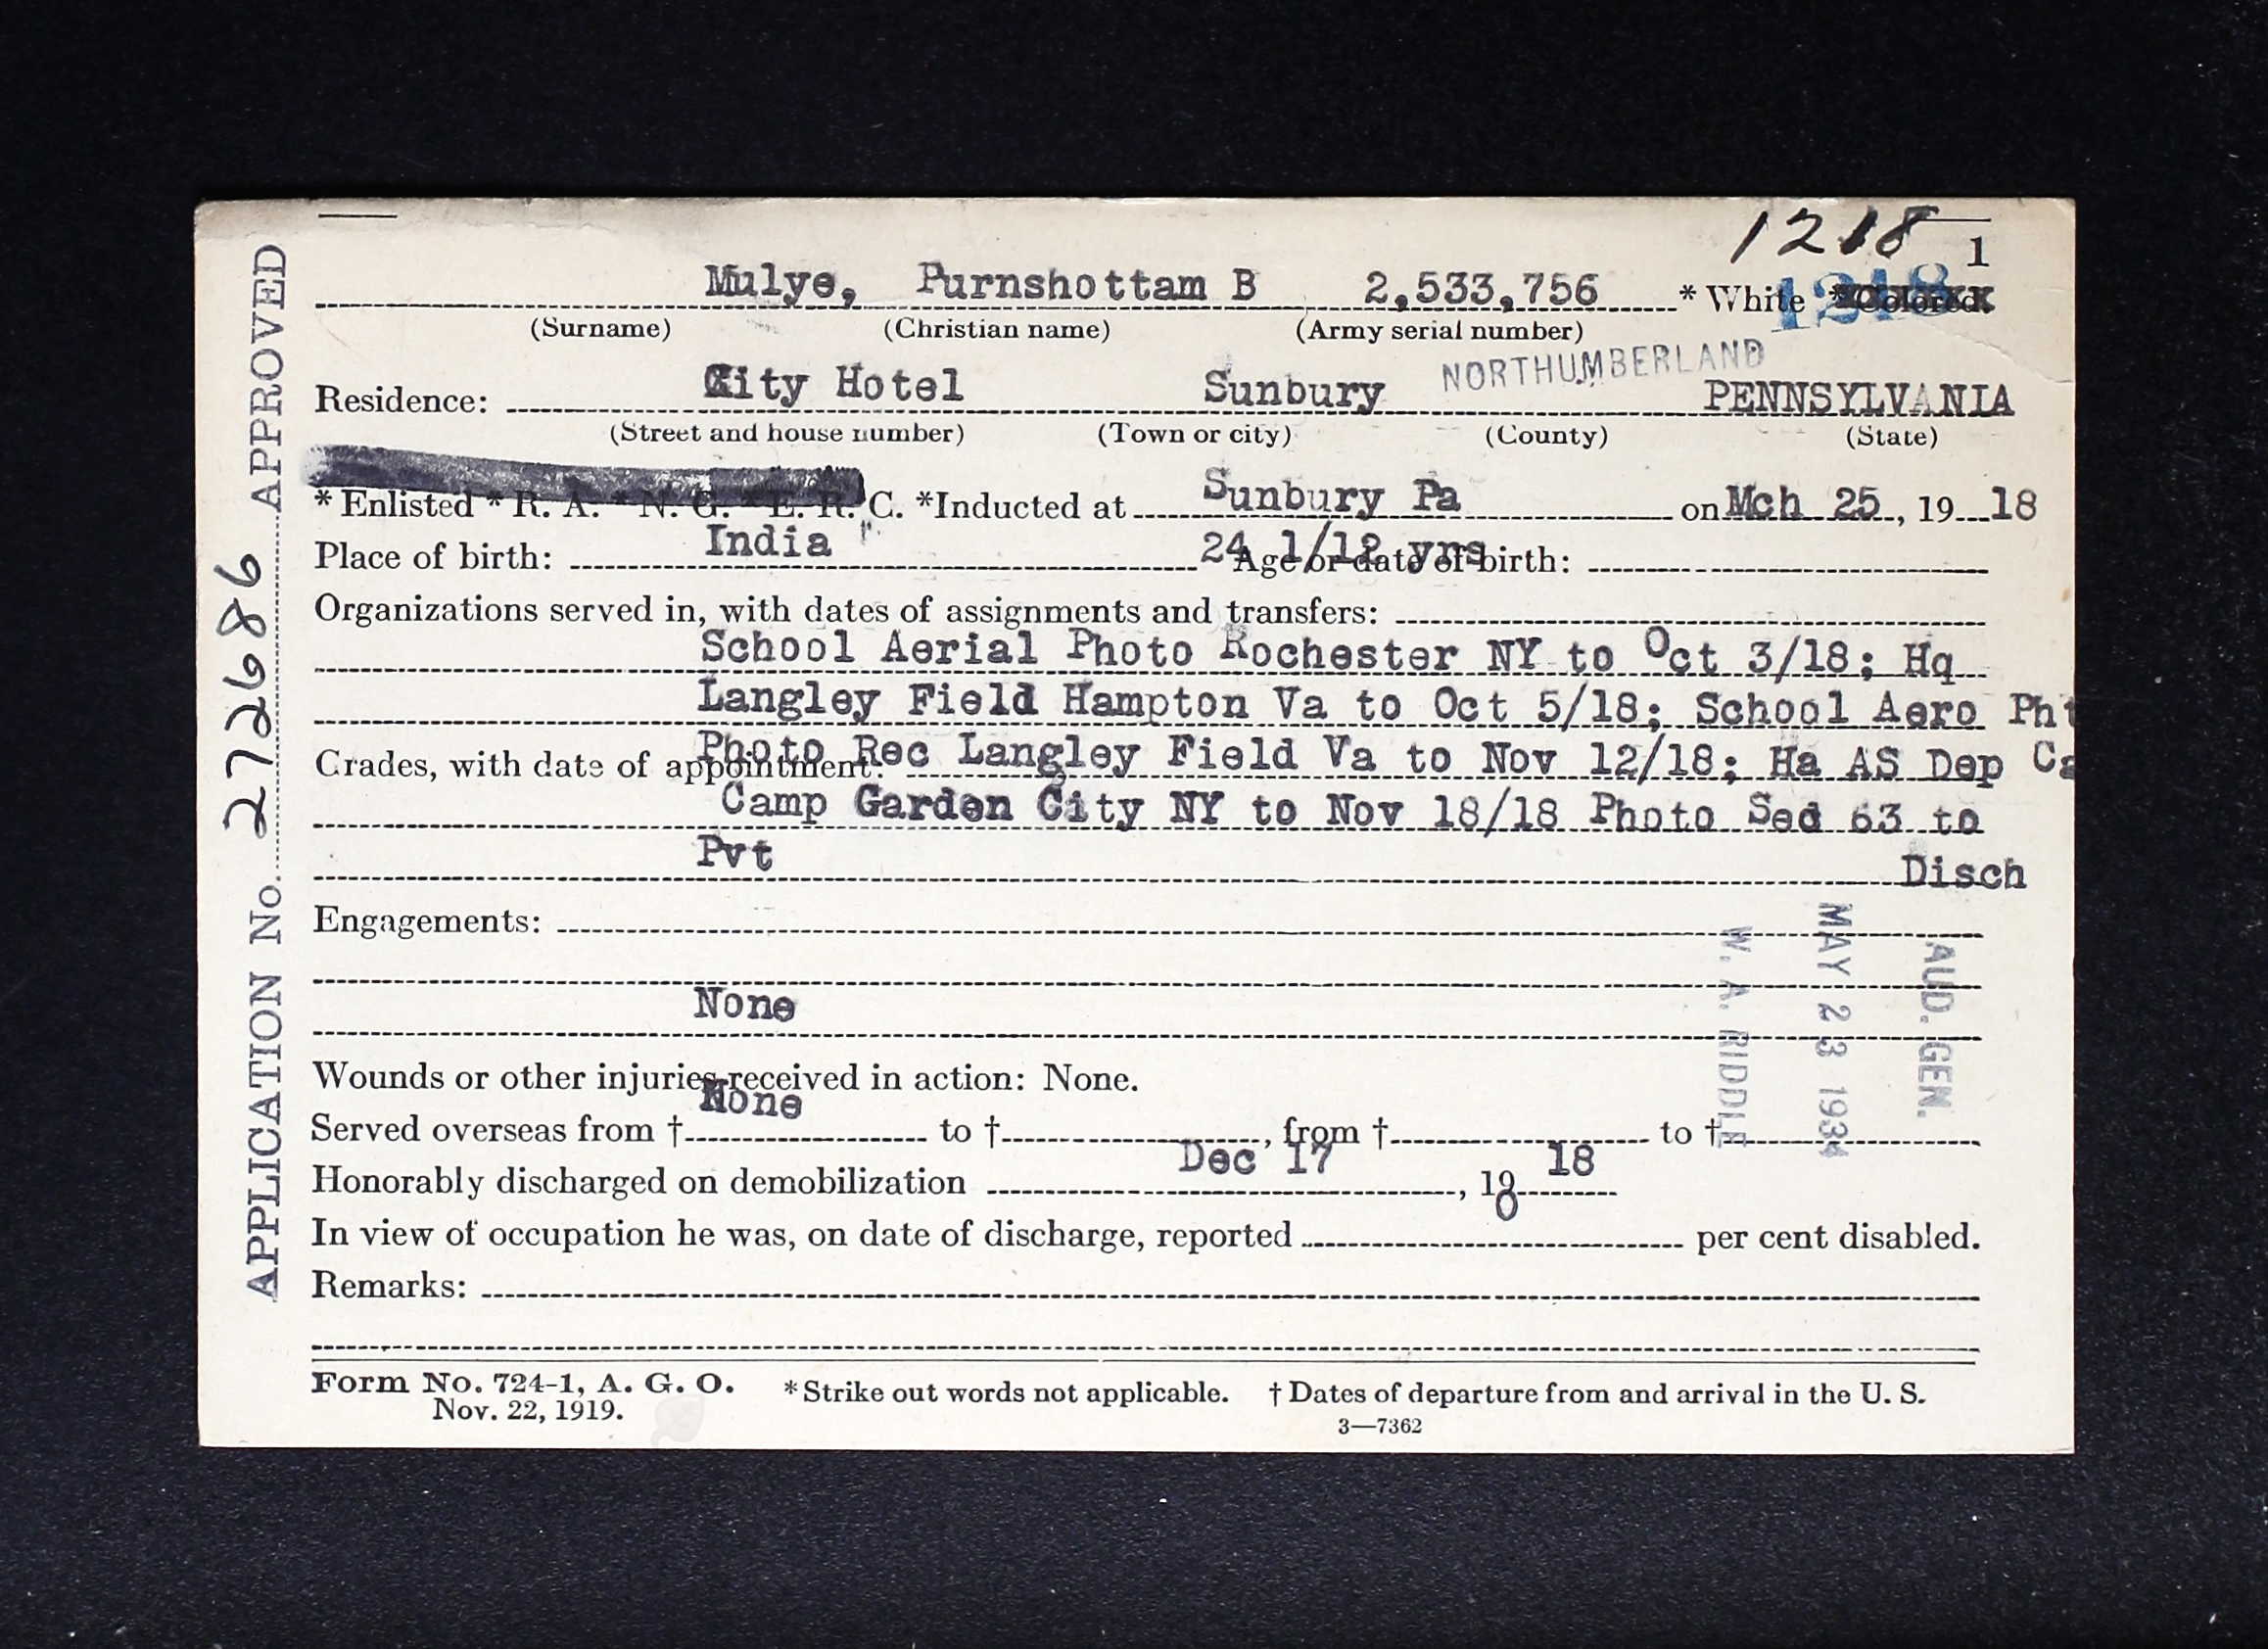 1218 1
Mulye, Purnshottam B 2,533,756 * White * Colored.
1218
(Surname) (Christian name) (Army serial number)
NORTHUMBERLAND
Residence: City Hotel Sunbury PENNSYLVANIA
(Street and house number) (Town or city) (County) (State)
* Enlisted * R. A. * N. G. * E. R. C. *Inducted at Sunbury Pa on Mch 25, 19 18
Place of birth: India 24 1/12 yrs Age or date of birth:
Organizations served in, with dates of assignments and transfers:
School Aerial Photo Rochester NY to Oct 3/18; Hq
Langley Field Hampton Va to Oct 5/18; School Aero Pht
Grades, with date of appointment: Photo Rec Langley Field Va to Nov 12/18; Ha AS Dep Ca
Camp Garden City NY to Nov 18/18 Photo Sec 63 to
Pvt Disch
Engagements:
None
Wounds or other injuries received in action: None.
None
Served overseas from † to †, from † to †
Honorably discharged on demobilization Dec 17, 19 18
In view of occupation he was, on date of discharge, reported 0 per cent disabled.
Remarks:
Form No. 724-1, A. G. O. * Strike out words not applicable. † Dates of departure from and arrival in the U. S.
Nov. 22, 1919. 3—7362
APPLICATION No. 272686 APPROVED
AUD. GEN.
MAY 23 1934
W. A. RIDDLE